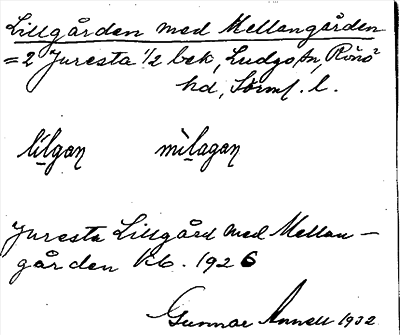 Lillgården med Mellangården
= 2 Juresta 1/2 bek, Ludgo sn, Rönö
hd, Sörml. l.
lilgan milagan
Juresta Lillgård med Mellan-
gården Kb. 1926
Gunnar Annell 1932